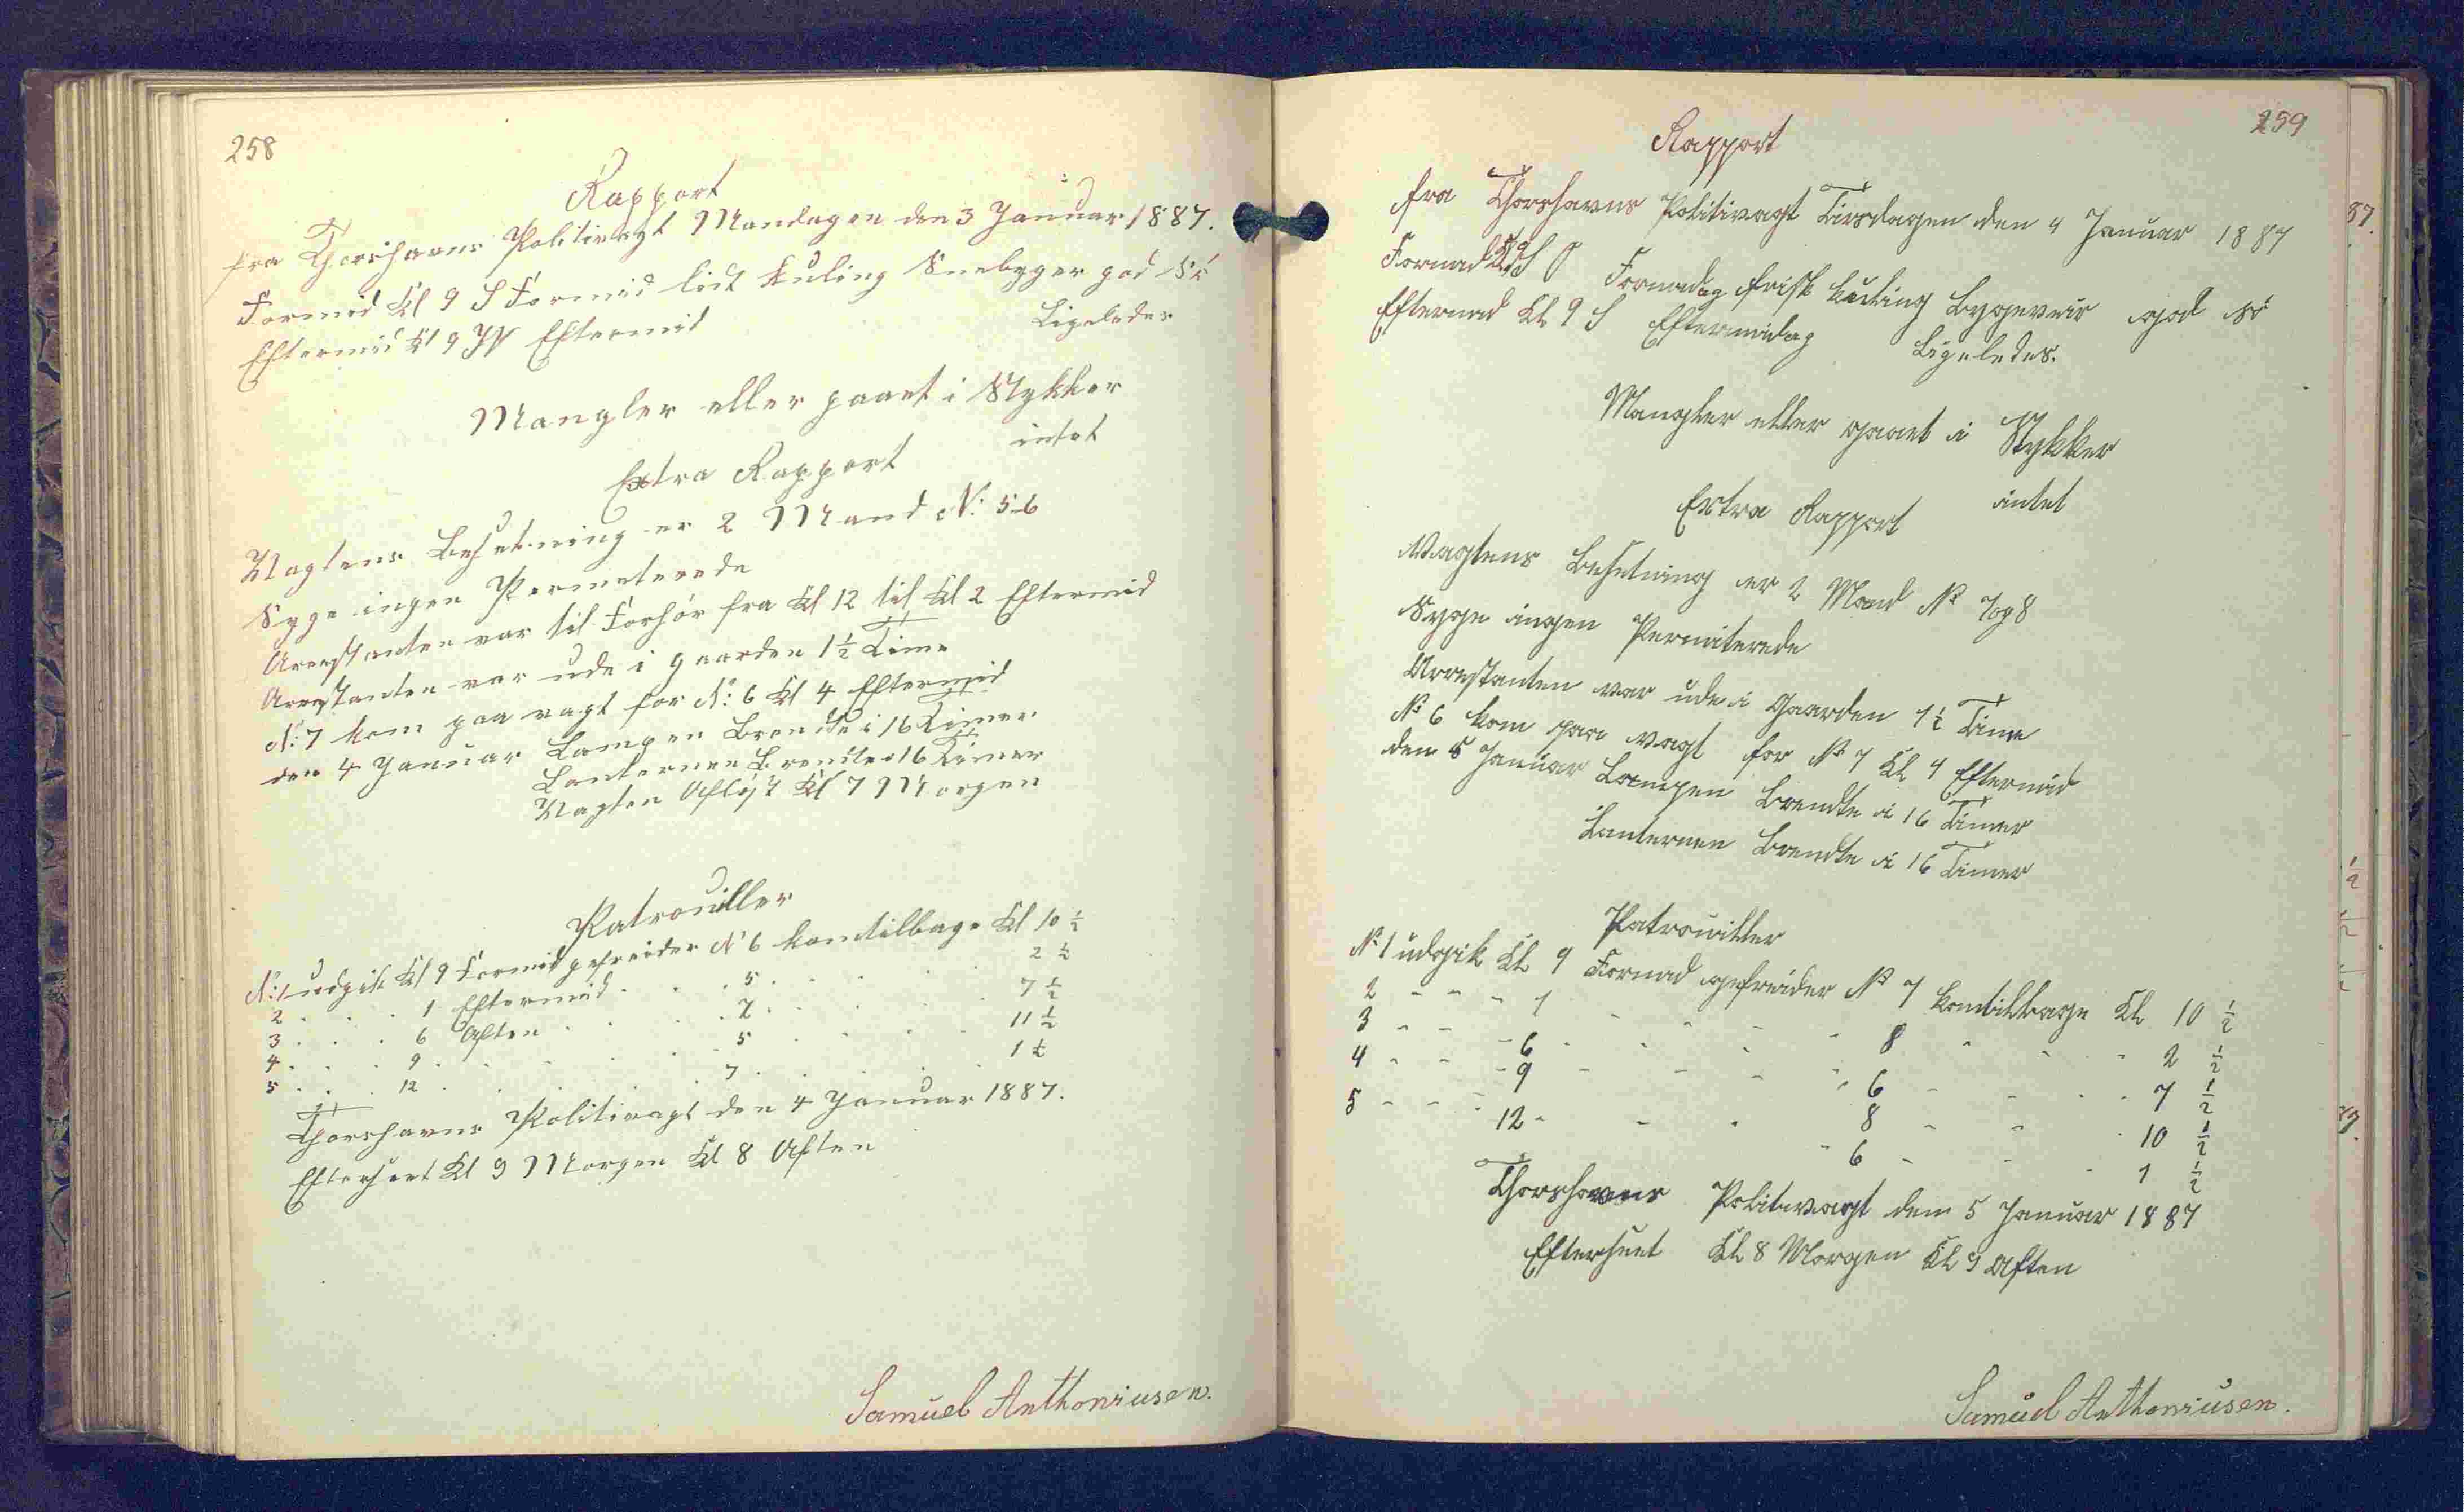 258
Rapport
fra Thorshavns Politivagt Mandagen den 3 Januar 1887.
Formid Kl 9 S Formid lidt Kuling Snebyger god Sé
Eftermid Kl 9 Eftermid Ligeledes
Mangler eller gaaet i Stykker
intet
Extra Rapport
Vagtens Besetning er 2 Mand N: 5-6
Syge ingen Permeterede
Arrestanten var til Forhør fra Kl 12 til Kl 2 Eftermid
Arestanten var ude i Gaarden 1½ Time
N: 7 kom paa vagt for N: 6 Kl 4 Eftermid
den 4 Januar Lampen Brendte i 16 Timer
Lanternen Brendte i 16 Timer
Vagten Afløst Kl 7 Morgen
Patrouiller
N: 1 udgik Kl 9 Formid gefreider N 6 kom tilbage Kl 10 ½
2 . . . 1 Eftermid . . . 5 . . . 2 ½
3 . . . 6 Aften . . . 7 . . . 7 ½
4 . . . 9 . . . 5 . . . 11 ½
5 . . . 12 . . . 7 . . . 1 ½
Thorshavns Politivagt den 4 Januar 1887.
Efterseet Kl 9 Morgen Kl 8 Aften
Samuel Anthoniusen.
259
Rapport
fra Thorshavns Politivagt Tirsdagen den 4 Januar 1887
Formad Kl 9 S Formadag frisk kuling Bygeveir god Sé
Eftermad Kl 9 S Eftermidag Ligeledes.
Mangler eller gaaet i Stykker
intet
Extra Rapport
Vagtens Besetning er 2 Mand No 7 og 8
Syge ingen Permiterede
Arrestanten var ude i Gaarden 1½ Time
No 6 kom paa vagt for No 7 Kl 4 Eftermid
den 5 Januar Lampen Brendte i 16 Timer
Lanternen Brendte i 16 Timer
Patrouiller
No 1 udgik Kl 9 Formad gefreider No 7 komtilbage Kl 10 ½
2 - - - 1 - - - 8 - - - 2 ½
3 - - - 6 - - - 6 - - - 7 ½
4 - - - 9 - - - 8 - - - 10 ½
5 - - - 12 - - - 6 - - - 1 ½
Thorshavns Politivagt den 5 Januar 1887
Efterseet Kl 8 Morgen Kl 9 Aften
Samuel Anthoniusen.
87.
½